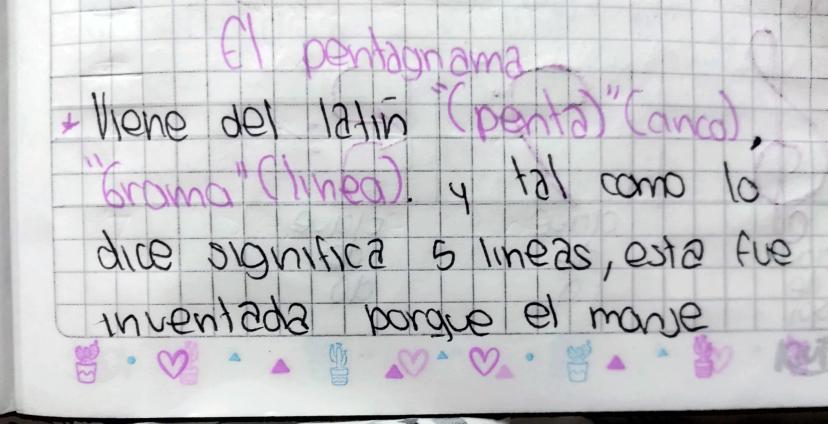 El pentagrama
* Viene del latin "(penta)" (cinco),
"Grama" (linea). y tal como lo
dice significa 5 lineas, esta fue
inventada porque el monje